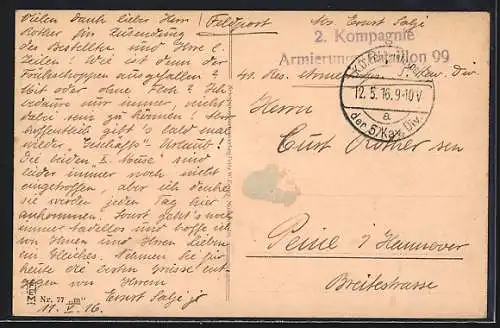 Vielen Dank lieber Herr
Rother für Zusendung
des Bestellten und Ihre l.
Zeilen! Wie ist denn der
Frühschoppen ausgefallen?
Mit oder ohne Floh? Ich
immer, nicht
dabei sein zu können! Hof-
fentlich gibt's bald mal
wieder "Geschäfts"-Urlaub!
Die beiden sind
leider immer noch nicht
eingetroffen, aber ich denke
sie werden jeden Tag hier
ankommen. Sonst geht's noch
immer tadellos und hoffe ich
von Ihnen und Ihren Lieben
ein Gleiches. Nehmen Sie für
heute die ersten Grüsse ent-
gegen von Ihrem
Ernst Salzi jr
11.V.16.
Nr. 77 "m"
Feldpost
Abs. Ernst Salzi
2. Kompagnie
Armierungs-Bataillon 99
Kav. Div
12.5.16.9-10V
a
der 5. Kav. Div.
Herrn
Curt Rother sen
Peine i/Hannover
Breitestrasse